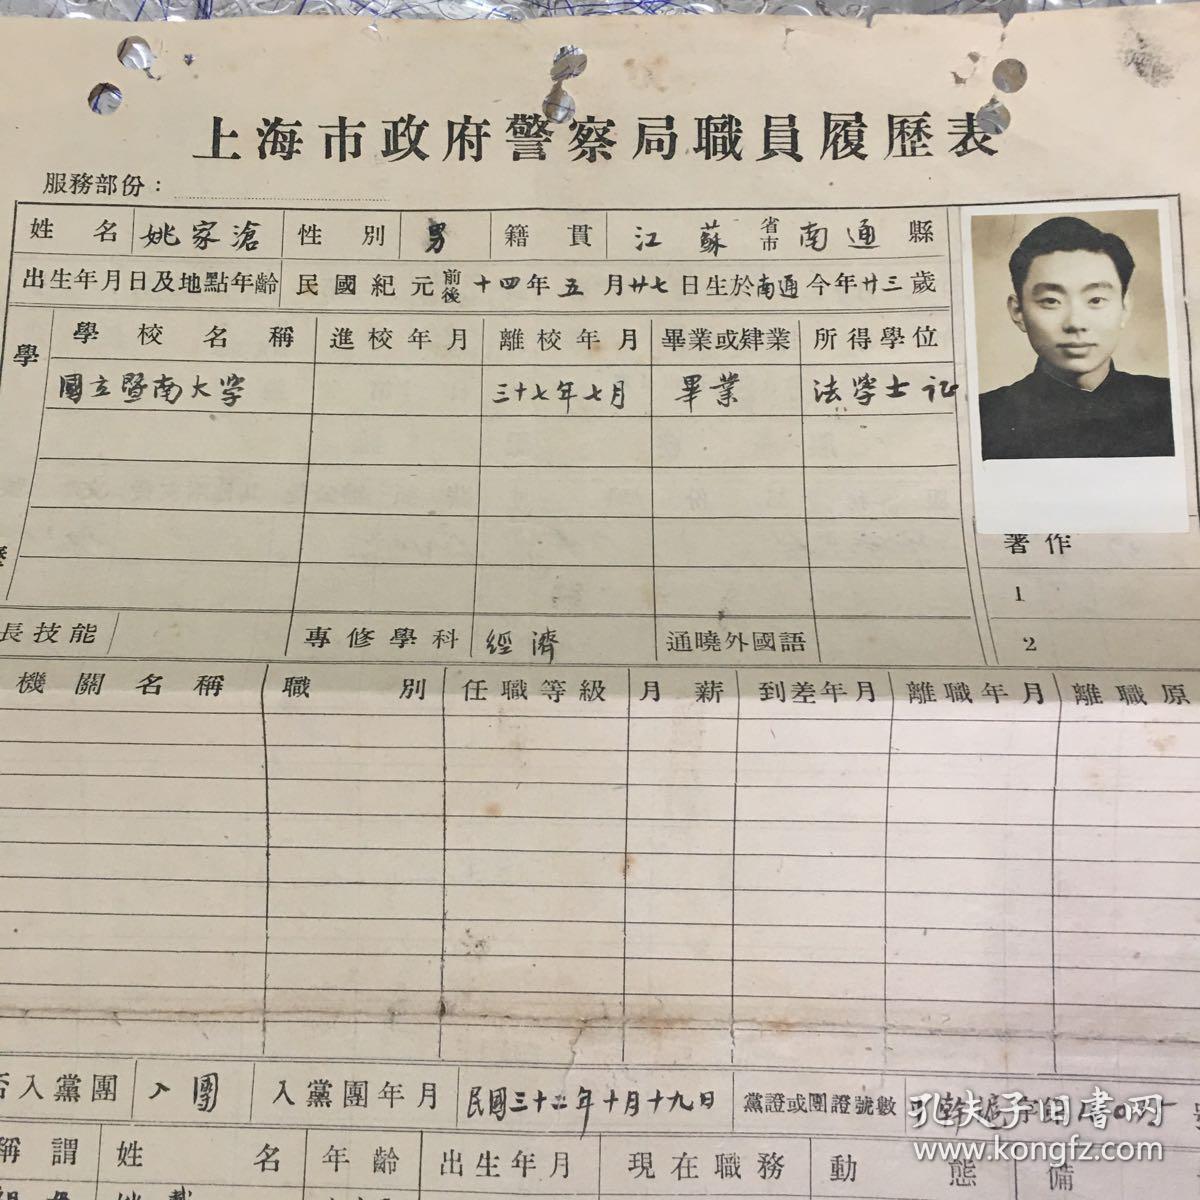 上海市政府警察局職員履歷表
服務部份：
姓名 姚家滄 性別 男 籍貫 江蘇 省市 南通 縣
出生年月日及地點年齡 民國紀元前後十四年五月廿七日生於南通今年廿三歲
學 學校名稱 進校年月 離校年月 畢業或肄業 所得學位
國立暨南大学 三十七年七月 畢業 法學士
著作
1
長技能 專修學科 經濟 通曉外國語 2
機關名稱 職別 任職等級 月薪 到差年月 離職年月 離職原
否入黨團 入團 入黨團年月 民國三十二年十月十九日 黨證或團證號數
稱謂 姓名 年齡 出生年月 現在職務 動態 備
孔夫子旧書网
www.kongfz.com